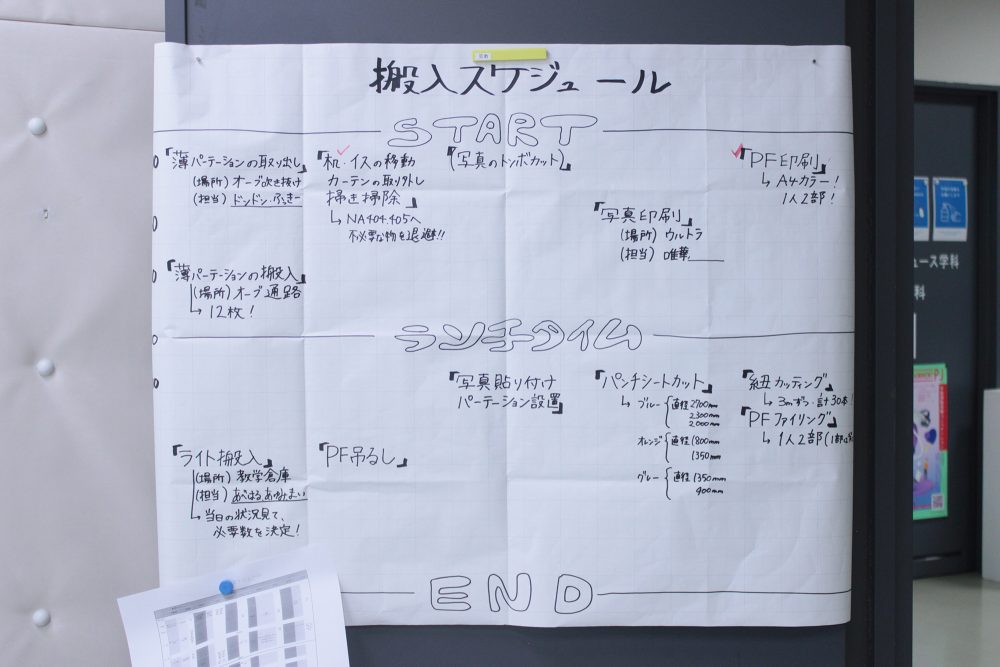 搬入スケジュール
START
「薄パーテーションの取り出し」
(場所) オーブ吹き抜け
(担当) ドンドン、ふっきー
「机・イスの移動
カーテンの取り外し
掃き掃除」
→ NA404.405へ
不必要な物を退避!!
「写真のトンボカット」
「写真印刷」
(場所) ウルトラ
(担当) 唯華
「PF印刷」
→ A4カラー!
1人2部!
「薄パーテーションの搬入」
(場所) オーブ通路
→ 12枚!
ランチタイム
「写真貼り付け
パーテーション設置」
「パンチシートカット」
→ ブルー { 直径2700mm
2300mm
2000mm
オレンジ { 直径1800mm
1350mm
グレー { 直径1350mm
900mm
「紐カッティング」
→ 3mずつ・計30本!
「PFファイリング」
→ 1人2部
「ライト搬入」
(場所) 教学倉庫
(担当) あべはる、あゆみ、まい
→ 当日の状況見て、
必要数を決定!
「PF吊るし」
END
ュース学科
科